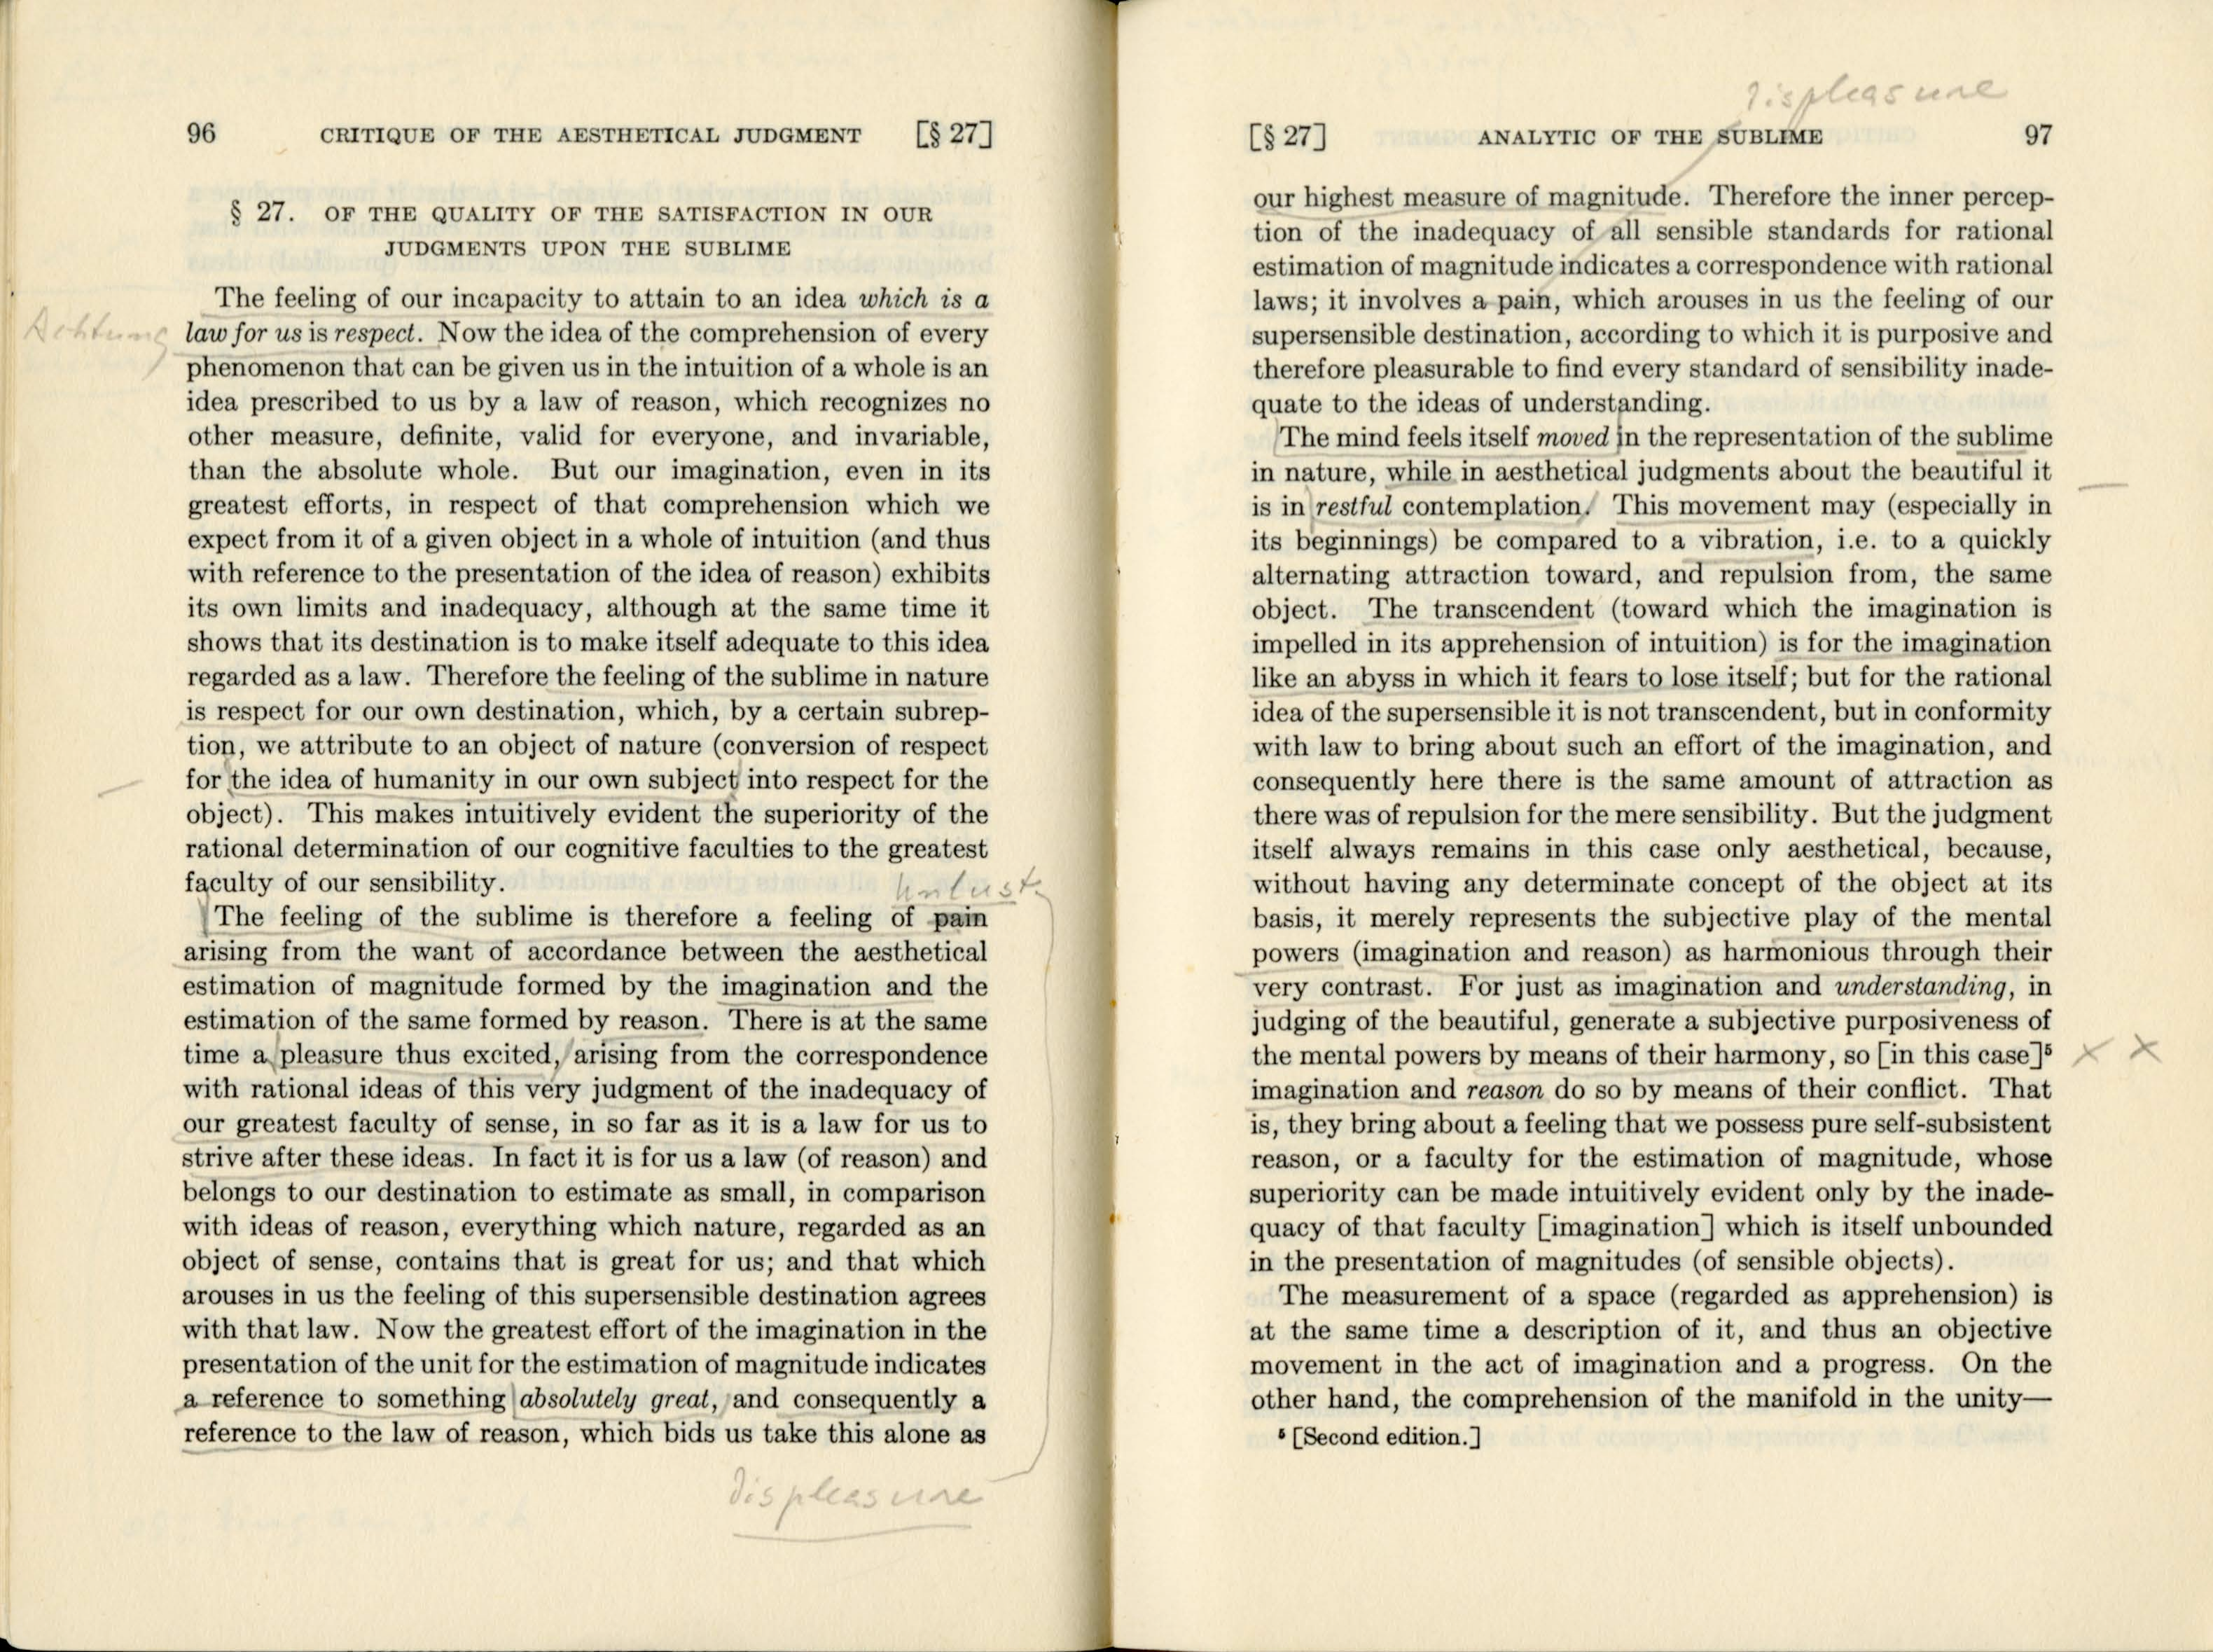 96 CRITIQUE OF THE AESTHETICAL JUDGMENT [§ 27]
§ 27. OF THE QUALITY OF THE SATISFACTION IN OUR
JUDGMENTS UPON THE SUBLIME
The feeling of our incapacity to attain to an idea which is a
Achtung
law for us is respect. Now the idea of the comprehension of every
phenomenon that can be given us in the intuition of a whole is an
idea prescribed to us by a law of reason, which recognizes no
other measure, definite, valid for everyone, and invariable,
than the absolute whole. But our imagination, even in its
greatest efforts, in respect of that comprehension which we
expect from it of a given object in a whole of intuition (and thus
with reference to the presentation of the idea of reason) exhibits
its own limits and inadequacy, although at the same time it
shows that its destination is to make itself adequate to this idea
regarded as a law. Therefore the feeling of the sublime in nature
is respect for our own destination, which, by a certain subrep-
tion, we attribute to an object of nature (conversion of respect
for the idea of humanity in our own subject into respect for the
object). This makes intuitively evident the superiority of the
rational determination of our cognitive faculties to the greatest
faculty of our sensibility.
Unlust
The feeling of the sublime is therefore a feeling of pain
arising from the want of accordance between the aesthetical
estimation of magnitude formed by the imagination and the
estimation of the same formed by reason. There is at the same
time a pleasure thus excited, arising from the correspondence
with rational ideas of this very judgment of the inadequacy of
our greatest faculty of sense, in so far as it is a law for us to
strive after these ideas. In fact it is for us a law (of reason) and
belongs to our destination to estimate as small, in comparison
with ideas of reason, everything which nature, regarded as an
object of sense, contains that is great for us; and that which
arouses in us the feeling of this supersensible destination agrees
with that law. Now the greatest effort of the imagination in the
presentation of the unit for the estimation of magnitude indicates
a reference to something absolutely great, and consequently a
reference to the law of reason, which bids us take this alone as
displeasure
displeasure
[§ 27] ANALYTIC OF THE SUBLIME 97
our highest measure of magnitude. Therefore the inner percep-
tion of the inadequacy of all sensible standards for rational
estimation of magnitude indicates a correspondence with rational
laws; it involves a pain, which arouses in us the feeling of our
supersensible destination, according to which it is purposive and
therefore pleasurable to find every standard of sensibility inade-
quate to the ideas of understanding.
The mind feels itself moved in the representation of the sublime
in nature, while in aesthetical judgments about the beautiful it
is in restful contemplation. This movement may (especially in
its beginnings) be compared to a vibration, i.e. to a quickly
alternating attraction toward, and repulsion from, the same
object. The transcendent (toward which the imagination is
impelled in its apprehension of intuition) is for the imagination
like an abyss in which it fears to lose itself; but for the rational
idea of the supersensible it is not transcendent, but in conformity
with law to bring about such an effort of the imagination, and
consequently here there is the same amount of attraction as
there was of repulsion for the mere sensibility. But the judgment
itself always remains in this case only aesthetical, because,
without having any determinate concept of the object at its
basis, it merely represents the subjective play of the mental
powers (imagination and reason) as harmonious through their
very contrast. For just as imagination and understanding, in
judging of the beautiful, generate a subjective purposiveness of
the mental powers by means of their harmony, so [in this case]⁵ x x
imagination and reason do so by means of their conflict. That
is, they bring about a feeling that we possess pure self-subsistent
reason, or a faculty for the estimation of magnitude, whose
superiority can be made intuitively evident only by the inade-
quacy of that faculty [imagination] which is itself unbounded
in the presentation of magnitudes (of sensible objects).
The measurement of a space (regarded as apprehension) is
at the same time a description of it, and thus an objective
movement in the act of imagination and a progress. On the
other hand, the comprehension of the manifold in the unity—
⁵ [Second edition.]